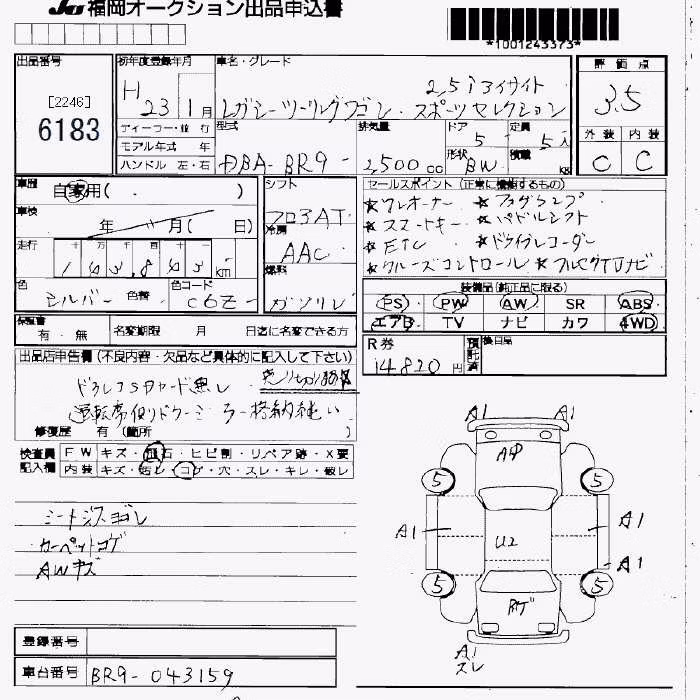 JU 福岡オークション出品申込書
*1001243373*
出品番号
[2246]
6183
初年度登録年月
H 23 1月
ディーラー・並 行
モデル年式 年
ハンドル 左・右
車名・グレード
2.5i アイサイト
レガシーツーリングワゴン・スポーツセレクション
型式
DBA-BR9-
排気量
2,500cc
ドア
5
定員
5人
形状
BW
積載
kg
評 価 点
3.5
外 装 内 装
C C
車歴
自家用( )
車検
年 月( 日)
走行
十 万 千 百 十
143,843km
色
シルバー
色替
色コード
C6Z-
シフト
フロア AT
冷房
AAC
燃料
ガソリン
セールスポイント (正常に機能するもの)
★ワンオーナー ★フォグランプ
★スマートキー ★パドルシフト
★ETC ★ドライブレコーダー
★クルーズコントロール ★フルセグTVナビ
装備品(純正品に限る)
PS PW AW SR ABS
エアB TV ナビ カワ 4WD
保証書
有・無
名変期限 月 日迄に名変できる方
R券
14820円
預託済
後日品
出品店申告欄 (不良内容・欠品など具体的に記入して下さい)
売り切り
運転席側ドアミラー格納
修復歴 有 (箇所 )
検査員記入欄
FW キズ・飛石・ヒビ割・リペア跡・X要
内装 キズ・汚レ・コゲ・穴・スレ・キレ・破レ
シートシミヨゴレ
カーペットコゲ
AWキズ
A1 A1
5 5
A1 A1
U2
A1
5 5
A1
スレ
登録番号
車台番号
BR9-043159